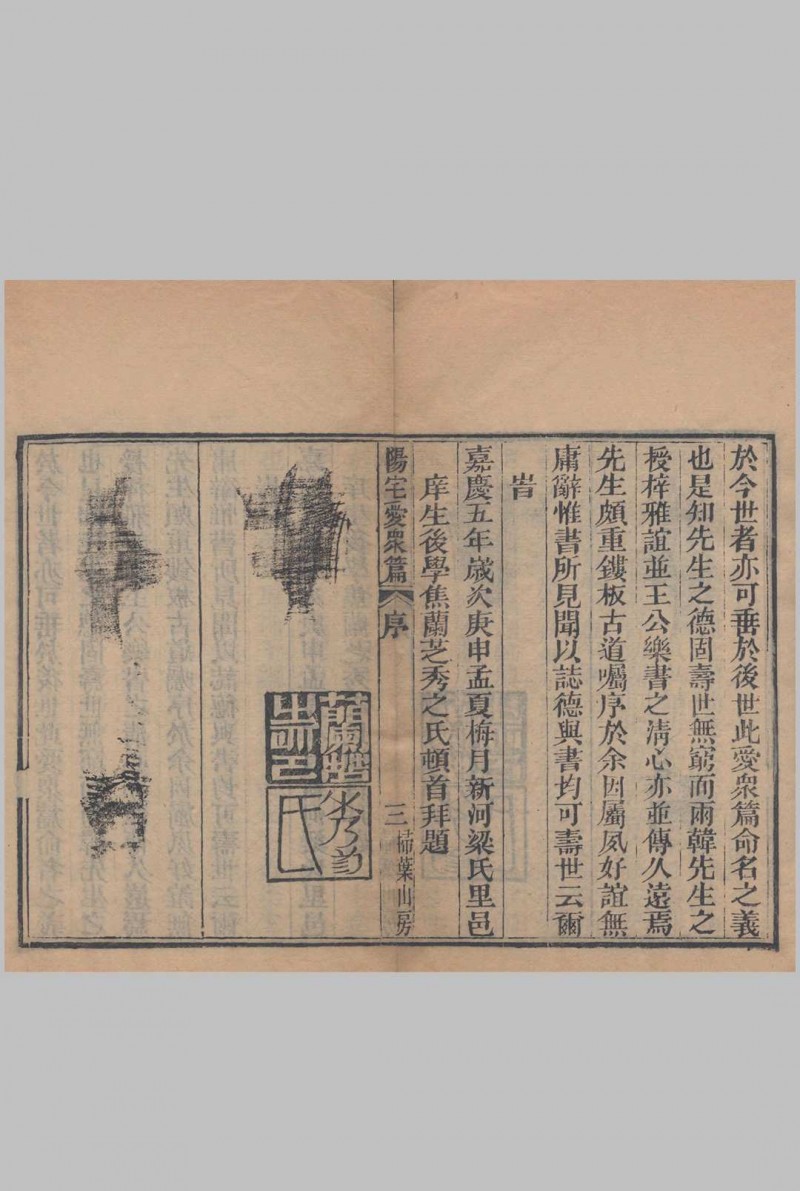 於今世者亦可垂於後世此愛衆篇命名之義
也是知先生之德固壽世無窮而兩韓先生之
授梓雅誼並王公樂書之清心亦並傳久遠焉
先生頗重鏤板古道囑序於余因屬夙好誼無
庸辭惟書所見聞以誌德與書均可壽世云爾
旹
嘉慶五年歲次庚申孟夏梅月新河梁氏里邑
庠生後學焦蘭芝秀之氏頓首拜題
陽宅愛衆篇 序 三 掃葉山房